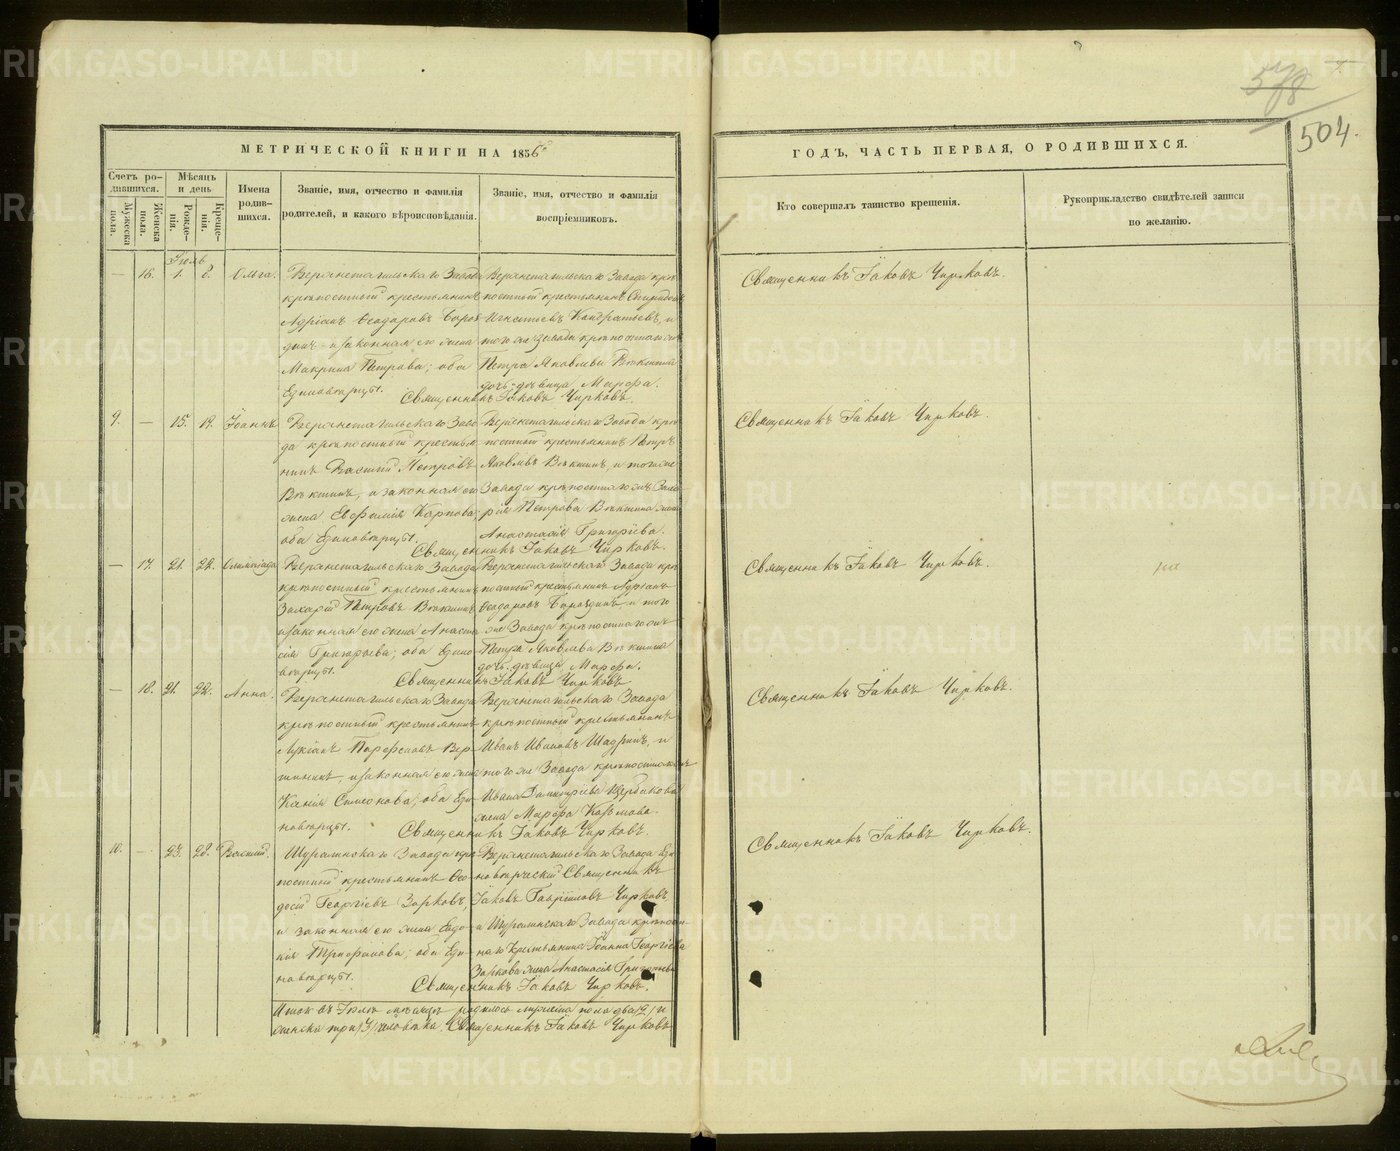 578
504.
МЕТРИЧЕСКОЙ КНИГИ НА 1856й
ГОДЪ, ЧАСТЬ ПЕРВАЯ, О РОДИВШИХСЯ.
Счетъ родившихся.
Мужеска пола.
Женска пола.
Мѣсяцъ и день
Рожденія.
Крещенія.
Имена родившихся.
Званіе, имя, отчество и фамилія
родителей, и какого вѣроисповѣданія.
Званіе, имя, отчество и фамилія
воспріемниковъ.
Кто совершалъ таинство крещенія.
Рукоприкладство свидѣтелей записи
по желанію.
Іюль
— 16. 1. Ольга.
Верхнетагильскаго Завода
крѣпостный крестьянинъ
Адріанъ Ѳеодоровъ Боро
динъ и законная его жена
Макрина Петрова; оба
Единовѣрцы.
Верхнетагильскаго Завода крѣ
постный крестьянинъ Спиридонъ
Игнатіевъ Кондратьевъ, и
того же Завода крѣпостнаго
Петра Яковлева Вѣкшина
дочь дѣвица Марѳа.
Священникъ Іаковъ Чирковъ.
Священникъ Іаковъ Чирковъ.
9. — 15. 19. Іоаннъ
Верхнетагильскаго Заво
да крѣпостный крестья
нинъ Василій Петровъ
Вѣкшинъ, и законная его
жена Евфимія Карпова,
оба Единовѣрцы.
Верхнетагильскаго Завода крѣ
постный крестьянинъ Петръ
Яковлевъ Вѣкшинъ, и того же
Завода крѣпостнаго Заха
рія Петрова Вѣкшина жена
Анастасія Григорьева.
Священникъ Іаковъ Чирковъ.
Священникъ Іаковъ Чирковъ.
— 17. 21. 22. Олимпіада
Верхнетагильскаго Завода
крѣпостный крестьянинъ
Захарій Петровъ Вѣкшинъ
и законная его жена Анаста
сія Григорьева; оба Едино
вѣрцы.
Верхнетагильскаго Завода крѣ
постный крестьянинъ Адріанъ
Ѳеодоровъ Бородинъ и того
же Завода крѣпостнаго
Петра Яковлева Вѣкшина
дочь дѣвица Марѳа.
Священникъ Іаковъ Чирковъ
Священникъ Іаковъ Чирковъ.
— 18. 21. 22. Анна.
Верхнетагильскаго Завода
крѣпостный крестьянинъ
Лукіанъ Парѳеновъ Вер
шининъ, и законная его жена
Ксенія Симеонова; оба Еди
новѣрцы.
Верхнетагильскаго Завода
крѣпостный крестьянинъ
Иванъ Ивановъ Шадринъ, и
того же Завода крѣпостнаго
Ивана Димитріева Щербакова
жена Марѳа Козьмова.
Священникъ Іаковъ Чирковъ.
Священникъ Іаковъ Чирковъ.
10. — 23. 28. Василій.
Шуралинскаго Завода крѣ
постный крестьянинъ Ѳео
досій Георгіевъ Зорковъ,
и законная его жена Евдо
кія Трифонова; оба Еди
новѣрцы.
Верхнетагильскаго Завода Еди
новѣрческій Священникъ
Іаковъ Гавріиловъ Чирковъ,
и Шуралинскаго Завода крѣпост
наго крестьянина Іоанна Георгіева
Зоркова жена Анастасія Григорьева
Священникъ Іаковъ Чирковъ.
Священникъ Іаковъ Чирковъ.
Итого въ Іюлѣ мѣсяцѣ родилось мужеска пола два /2/ и
женска три /3/ человѣка. Священникъ Іаковъ Чирковъ
METRIKI.GASO-URAL.RU